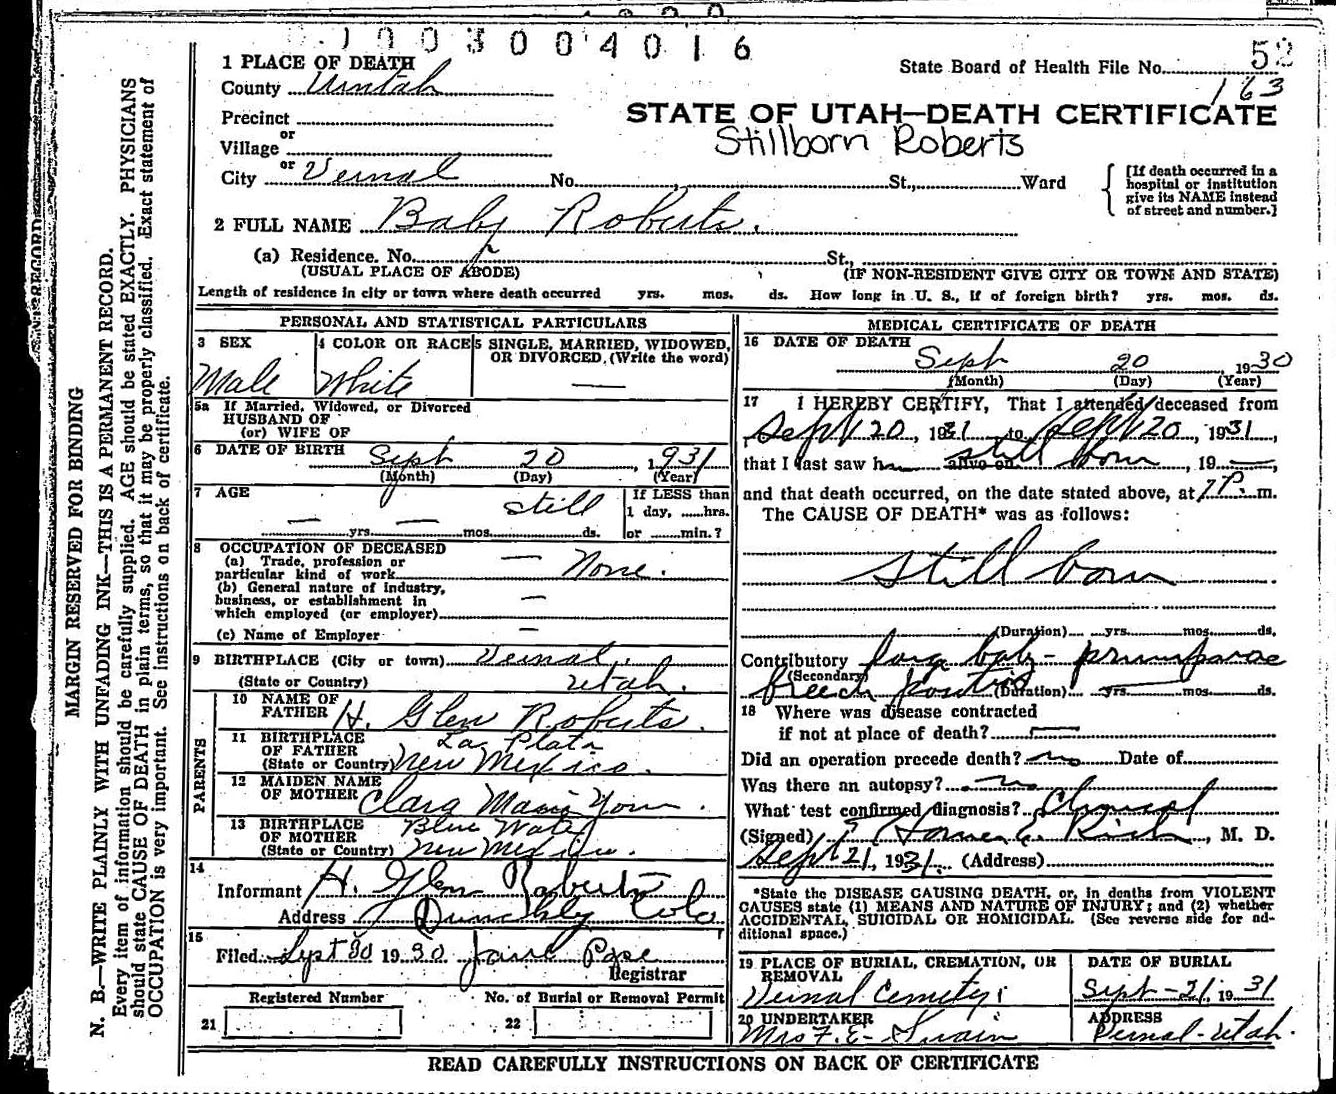 1003004016
52
163
1 PLACE OF DEATH
State Board of Health File No.
County Uintah
STATE OF UTAH—DEATH CERTIFICATE
Precinct
Stillborn Roberts
or
Village
or
City Vernal No. St., Ward
[If death occurred in a hospital or institution give its NAME instead of street and number.]
2 FULL NAME Baby Roberts.
(a) Residence. No. St.,
(USUAL PLACE OF ABODE) (IF NON-RESIDENT GIVE CITY OR TOWN AND STATE)
Length of residence in city or town where death occurred yrs. mos. ds. How long in U. S., if of foreign birth? yrs. mos. ds.
PERSONAL AND STATISTICAL PARTICULARS
3 SEX Male
4 COLOR OR RACE White
5 SINGLE, MARRIED, WIDOWED, OR DIVORCED, (Write the word) —
5a If Married, Widowed, or Divorced
HUSBAND OF
(or) WIFE OF
6 DATE OF BIRTH Sept 20, 1931
(Month) (Day) (Year)
7 AGE — — still
yrs. mos. ds.
If LESS than
1 day, ......hrs.
or ......min.?
8 OCCUPATION OF DECEASED
(a) Trade, profession or
particular kind of work — None.
(b) General nature of industry,
business, or establishment in
which employed (or employer) —
(c) Name of Employer —
9 BIRTHPLACE (City or town) Vernal,
(State or Country) Utah.
PARENTS
10 NAME OF
FATHER H. Glen Roberts.
11 BIRTHPLACE La Plata
OF FATHER
(State or Country) New Mexico.
12 MAIDEN NAME
OF MOTHER Clara
13 BIRTHPLACE Blue Water
OF MOTHER
(State or Country) New Mexico.
14
Informant H. Glen Roberts
Address Colo
15
Filed Sept 30 1930
Registrar
Registered Number No. of Burial or Removal Permit
21 22
MEDICAL CERTIFICATE OF DEATH
16 DATE OF DEATH
Sept 20 1930
(Month) (Day) (Year)
17 I HEREBY CERTIFY, That I attended deceased from
Sept 20, 1931 to Sept 20, 1931,
that I last saw h alive on still born, 19 —,
and that death occurred, on the date stated above, at 7 P. m.
The CAUSE OF DEATH* was as follows:
still born
(Duration) yrs. mos. ds.
Contributory larg baby - primiparae
(Secondary)
breech position (Duration) yrs. mos. ds.
18 Where was disease contracted
if not at place of death? —
Did an operation precede death? no Date of
Was there an autopsy? no
What test confirmed diagnosis? Clinical
(Signed) Homer E. Rich, M. D.
Sept 21, 1931. (Address)
*State the DISEASE CAUSING DEATH, or, in deaths from VIOLENT
CAUSES state (1) MEANS AND NATURE OF INJURY; and (2) whether
ACCIDENTAL, SUICIDAL OR HOMICIDAL. (See reverse side for ad-
ditional space.)
19 PLACE OF BURIAL, CREMATION, OR
REMOVAL
Vernal Cemetery
DATE OF BURIAL
Sept - 21, 1931
20 UNDERTAKER
Mrs F. E. Swain
ADDRESS
Vernal - Utah.
READ CAREFULLY INSTRUCTIONS ON BACK OF CERTIFICATE
MARGIN RESERVED FOR BINDING
N. B.—WRITE PLAINLY WITH UNFADING INK—THIS IS A PERMANENT RECORD.
Every item of information should be carefully supplied. AGE should be stated EXACTLY. PHYSICIANS
should state CAUSE OF DEATH in plain terms, so that it may be properly classified. Exact statement of
OCCUPATION is very important. See instructions on back of certificate.